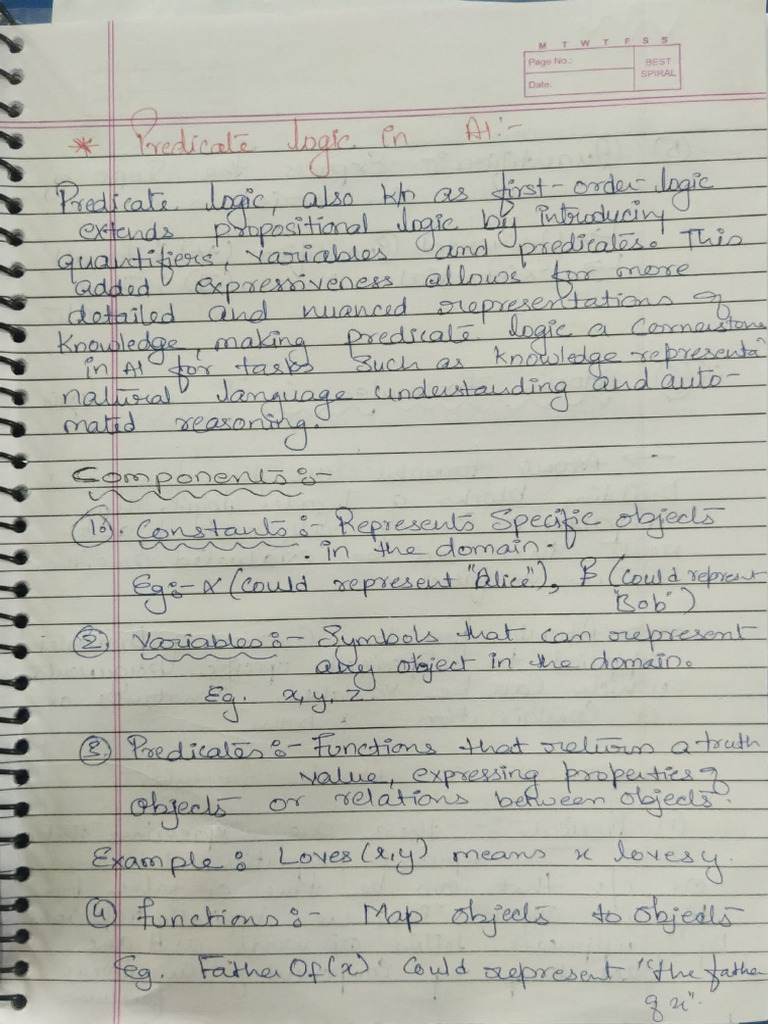 M T W T F S S
Page No.:
BEST
SPIRAL
Date:
* Predicate Logic in AI:-
Predicate logic, also k/n as first-order logic
extends propositional logic by introducing
quantifiers, variables and predicates. This
added expressiveness allows for more
detailed and nuanced representations of
knowledge, making predicate logic a cornerstone
in AI for tasks such as knowledge representa
natural language understanding and auto-
mated reasoning.
Components:-
1. Constants:- Represents Specific objects
in the domain.
Eg:- α (could represent "Alice"), β (could represent
"Bob")
2 Variables:- Symbols that can represent
any object in the domain.
Eg. x, y, z
3 Predicates:- Functions that return a truth
value, expressing properties of
objects or relations between objects.
Example: Loves (x,y) means x loves y.
4 Functions:- Map objects to objects
Eg. Father Of (x) Could represent "the father
of x".